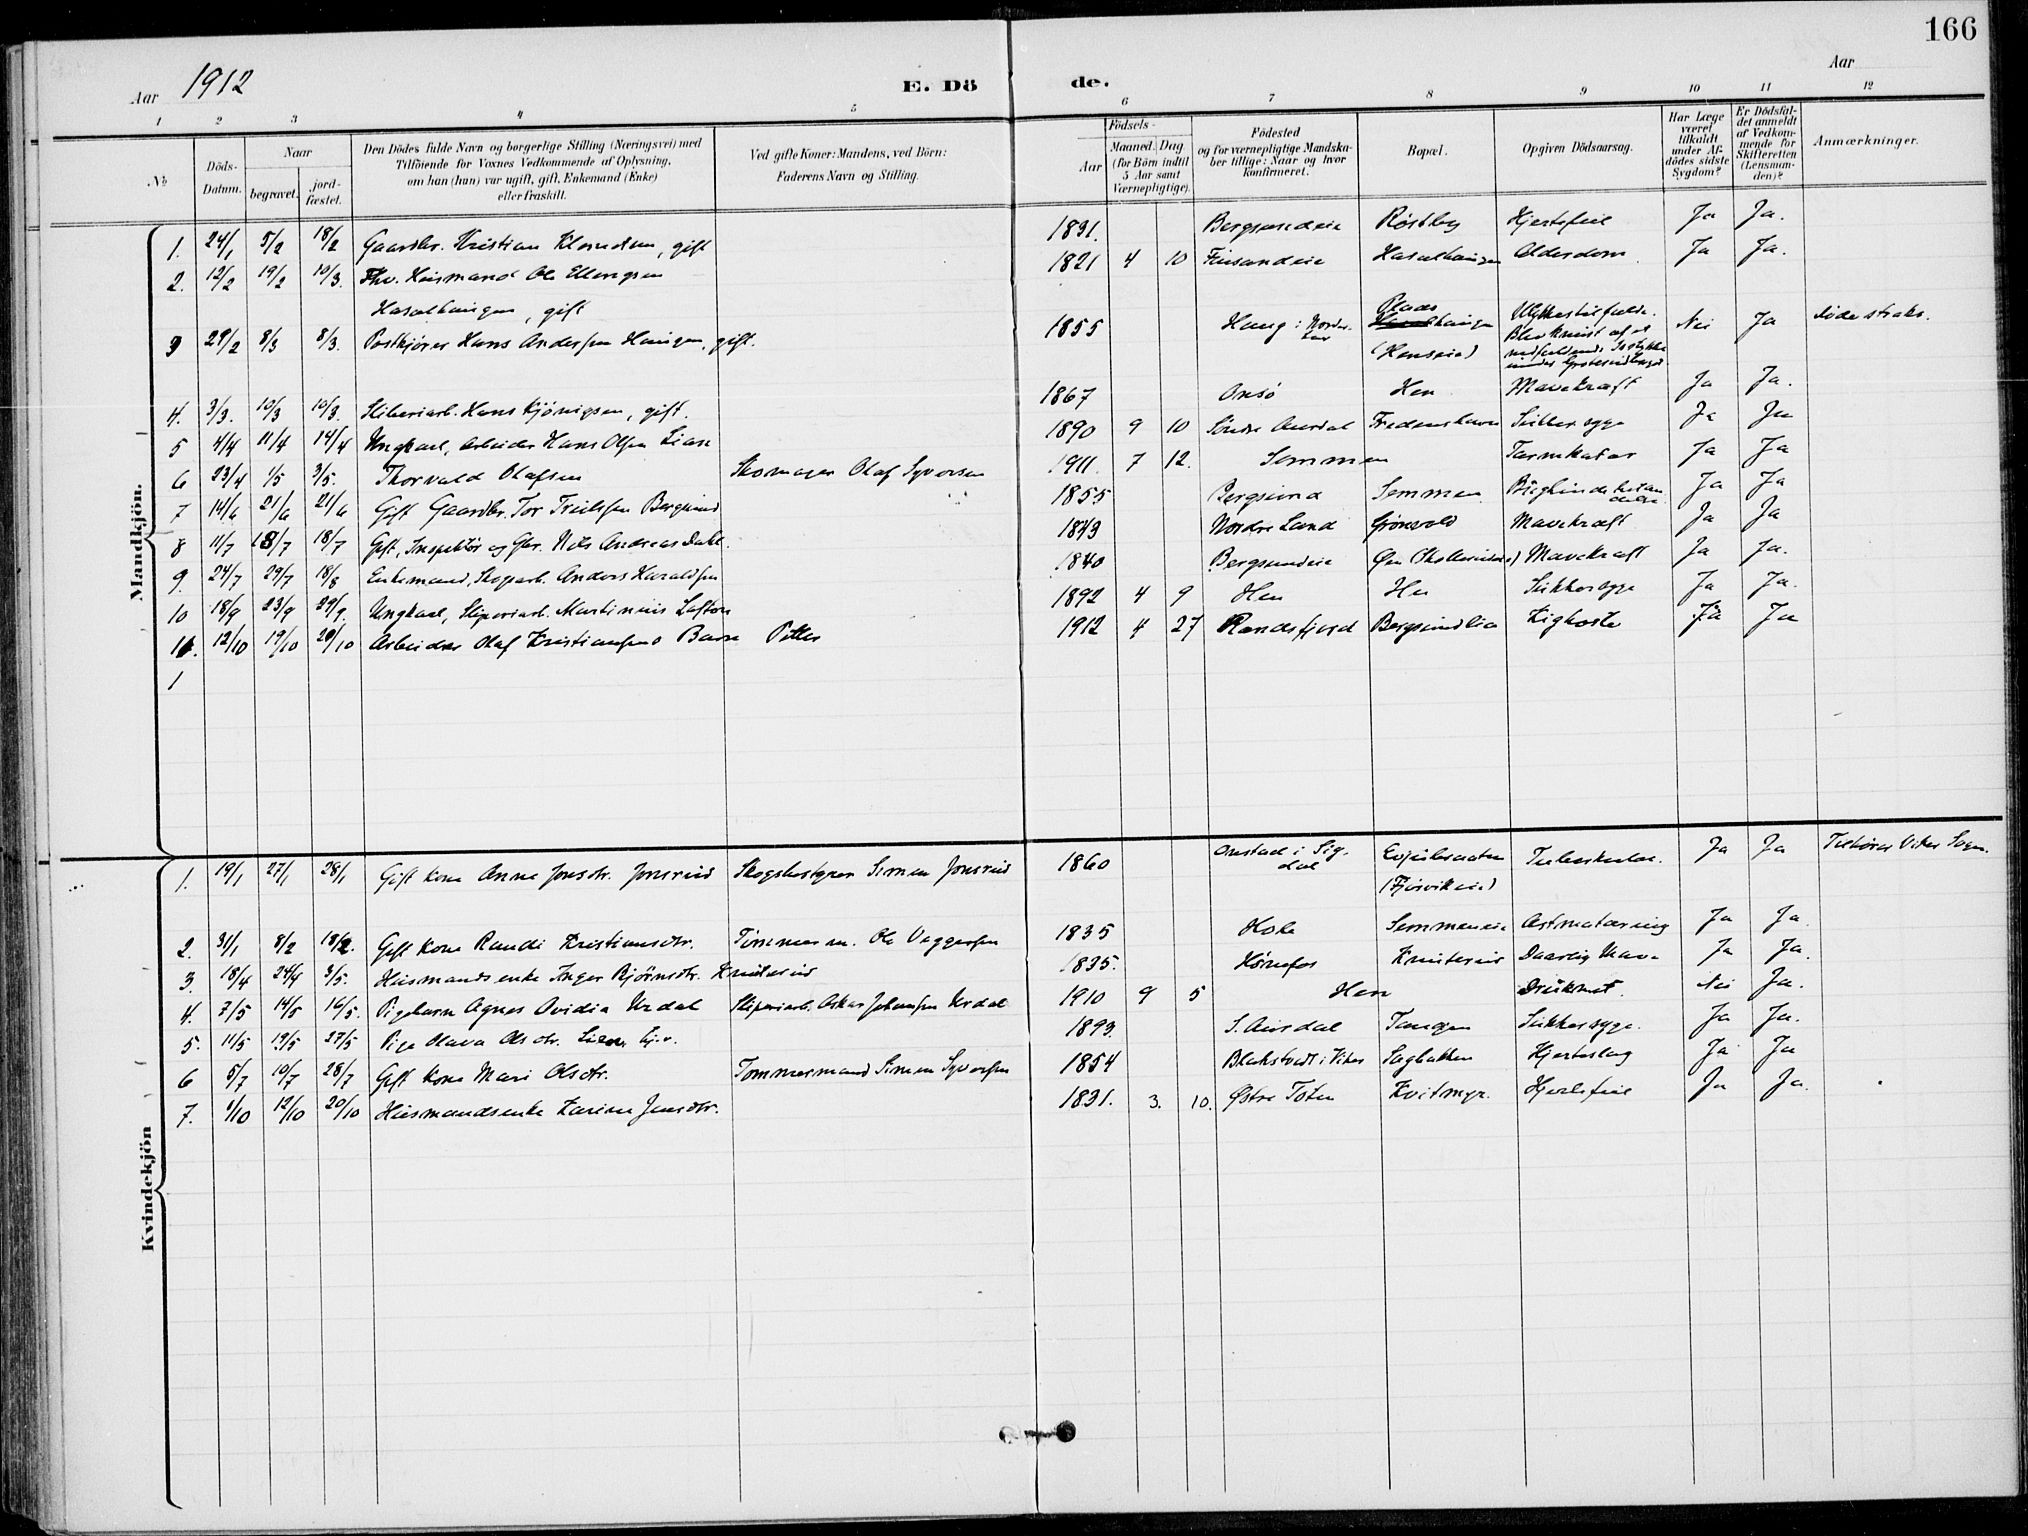 166
Aar 1912
E. Dö de.
Aar
1 2 3 4 5 6 7 8 9 10 11 12
№
Döds-
Datum.
Naar
begravet.
jord-
fæstet.
Den Dödes fulde Navn og borgerlige Stilling (Næringsvei) med
Tilföiende for Voxnes Vedkommende af Oplysning,
om han (hun) var ugift, gift, Enkemand (Enke)
eller fraskilt.
Ved gifte Koner: Mandens, ved Börn:
Faderens Navn og Stilling.
Födsels-
Aar
Maaned. Dag
(for Börn indtil
5 Aar samt
Værnepligtige).
Födested
og for værnepligtige Mandska-
ber tillige: Naar og hvor
konfirmeret.
Bopæl.
Opgiven Dödsaarsag.
Har Læge
været
tilkaldt
under Af-
dödes sidste
Sygdom?
Er Dödsfal-
det anmeldt
af Vedkom-
mende for
Skifteretten
(Lensman-
den)?
Anmærkninger.
Mandkjön.
1. 24/1 5/2 18/2 Gaardbr. Kristian , gift 1831. Bergsundeie Røstberg Hjertefeil Ja Ja.
2. 12/2 19/2 10/3. Fhv. Husmand Ole Ellingsen 1821 4 10 Alderdom Ja Ja.
, gift
3 29/2 8/3 8/3. Postkjører Hans Andersen Haugen, gift. 1855 Haug i Norder- Plads Ulykkestilfælde. Nei Ja Døde straks.
hov haugen Blev knust af et
(Henseie) nedfaldende
4. 3/3. 10/3 10/3 Sliberiarb. Hans Kjønigsen, gift. 1867 Onsø Hen Mavekræft Ja Ja.
5 4/4 11/4 14/4 Ungkarl, Arbeider Hans Olsen Lien 1890 9 10 Søndre Aurdal Sukkersyge Ja Ja
6 23/4 1/5 3/5. Thorvald Olafsen Skomager Olaf Syversen 1911. 7 12. Semmen Tarmkatar Ja Ja
7 14/6 21/6 21/6 Gift Gaardbr. Tor Bergsund 1855 Bergsund Semmen Bughindebetæn- Ja Ja
delse
8 11/7 18/7 18/7 Gift, Inspektør og Gbr. Nils Andreas Dahl. 1843 Nordre Land Grønvold Mavekræft Ja Ja
9. 24/7 29/7 18/8 Enkemand, Skogarb. Anders Haraldsen 1840 Bergsundeie Mavekræft Ja Ja.
10 18/9 23/9 29/9. Ungkarl, Sliperiarb. Martinius 1892 4 9 Hen Hen Sukkersyge Ja Ja.
11. 12/10 19/10 20/10 Arbeider Olaf Kristiansens Barn Petter 1912 4 27 Randsfjord Bergsundlia Kighoste Ja Ja
1
Kvindekjön
1. 19/1 27/1 28/1 Gift Kone Anne Jonsdtr. Jonsrud Skogbestyrer Simen Jonsrud 1860 i Sig- Tuberkulose. Ja Ja Tilhører Vikers Sogn.
dal
2. 31/1 8/2 18/2. Gift Kone Randi Kristiansdtr. Tømmerm. Ole Veggersen 1835 Hole Semmeneie Ja Ja
3. 18/4 24/4 3/5. Husmandsenke Inger Bjørnsdtr. Knuterud 1835. Hønefos Knuterud Daarlig Mave Ja Ja.
4. 7/5 14/5 16/5. Pigebarn Agnes Ovidia Urdal Sliperiarb. Oskar Johansen Urdal 1910 9 5 Hen Druknet. Nei Ja.
5. 11/5 19/5 27/5 Pige Olava Olsdtr. Lien 1893. S. Aurdal Tangen Sukkersyge. Ja Ja.
6 5/7 10/7 28/7 Gift Kone Mari Olsdtr. Tømmermand Simen Syversen 1854 i Viker Sagbakken Hjerteslag Ja Ja
7. 1/10 12/10 20/10 Husmandsenke Karine Jensdtr. 1831. 3. 10. Østre Toten Kvitmyr. Hjertefeil Ja Ja.